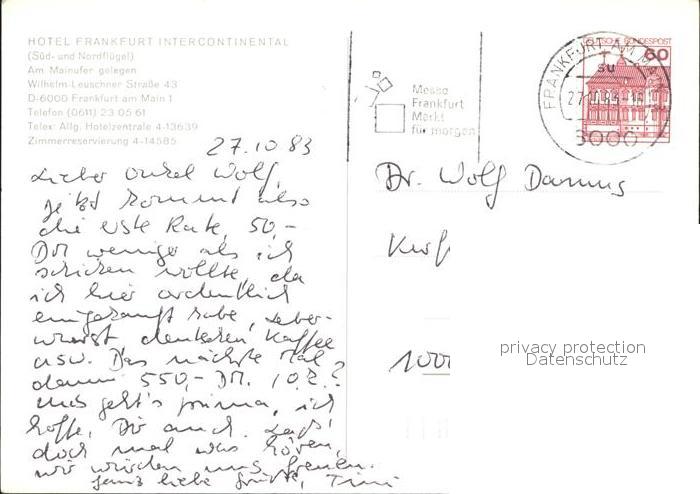 HOTEL FRANKFURT INTERCONTINENTAL
(Süd- und Nordflügel)
Am Mainufer gelegen
Wilhelm-Leuschner Straße 43
D-6000 Frankfurt am Main 1
Telefon (0611) 23 05 61
Telex: Allg. Hotelzentrale 4-13639
Zimmerreservierung 4-14585
27.10.83
Lieber Onkel Wolf,
jetzt kommt also
die erste Rate, 50,-
DM weniger als ich
schicken wollte, da
ich hier ordentlich
eingekauft habe, Leber-
wurst, Kaffee
usw. Das nächste Mal
dann 550,- DM. ?
Uns geht's prima, ich
hoffe, Dir auch. Laß'
doch mal was hören,
wir würden uns freuen.
Ganz liebe Grüße,
Messe
Frankfurt
Markt
für morgen
DEUTSCHE BUNDESPOST
60
FRANKFURT AM MAIN
27.10.83
6000
Dr. Wolf
1000
privacy protection
Datenschutz